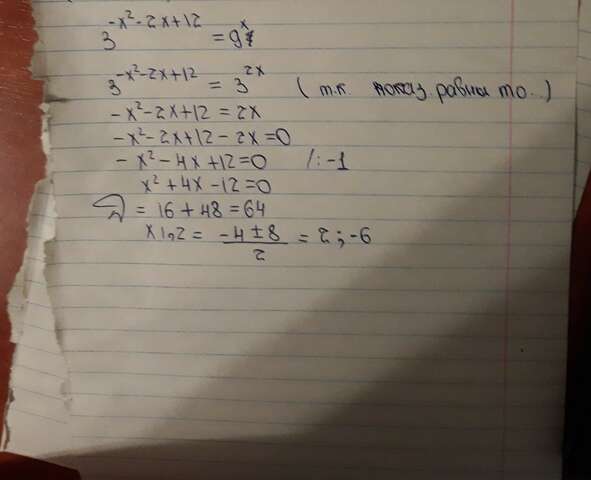 3^(-x²-2x+12) = 9^x
3^(-x²-2x+12) = 3^(2x) (т.к. показ. равны то..)
-x²-2x+12=2x
-x²-2x+12-2x=0
-x²-4x+12=0 /:-1
x²+4x-12=0
D = 16+48=64
x1,2 = (-4±8)/2 = 2;-6